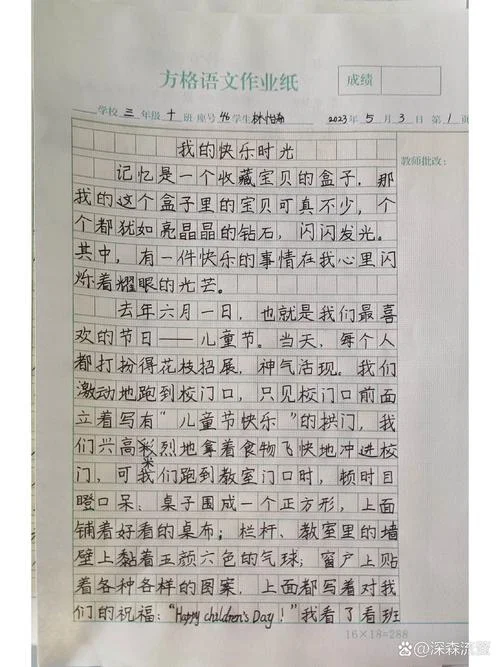 方格语文作业纸
成绩
学校三年级十班座号46学生林怡 2023年5月3日第1页
教师批改：
我的快乐时光
记忆是一个收藏宝贝的盒子，那
我的这个盒子里的宝贝可真不少，个
个都犹如亮晶晶的钻石，闪闪发光。
其中，有一件快乐的事情在我心里闪
烁着耀眼的光芒。
去年六月一日，也就是我们最喜
欢的节日——儿童节。当天，每个人
都打扮得花枝招展，神气活现。我们
激动地跑到校门口，只见校门口前面
立着写有“儿童节快乐”的拱门，我
们兴高彩烈地拿着食物飞快地冲进校
门，可我们跑到教室门口时，顿时目
瞪口呆：桌子围成一个正方形，上面
铺着好看的桌布；栏杆、教室里的墙
壁上黏着五颜六色的气球；窗户上贴
着各种各样的图案，上面都写着对我
们的祝福：“Happy children's Day！”我看了看班
16×18=288
@深森流萤